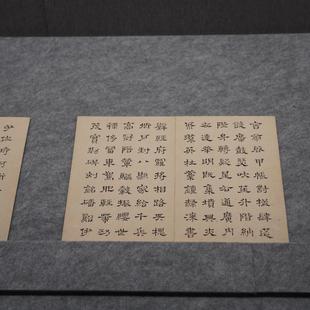 舍傍啟甲帳對楹肆筵
設席鼓瑟吹笙升階納
陛弁轉疑星右通廣內
左達承明既集墳典亦
聚群英杜稿鍾隸漆書
壁經府羅將相路俠槐
卿戶封八縣家給千兵
高冠陪輦驅轂振纓世
祿侈富車駕肥輕策功
茂實勒碑刻銘磻溪伊
尹佐時阿衡